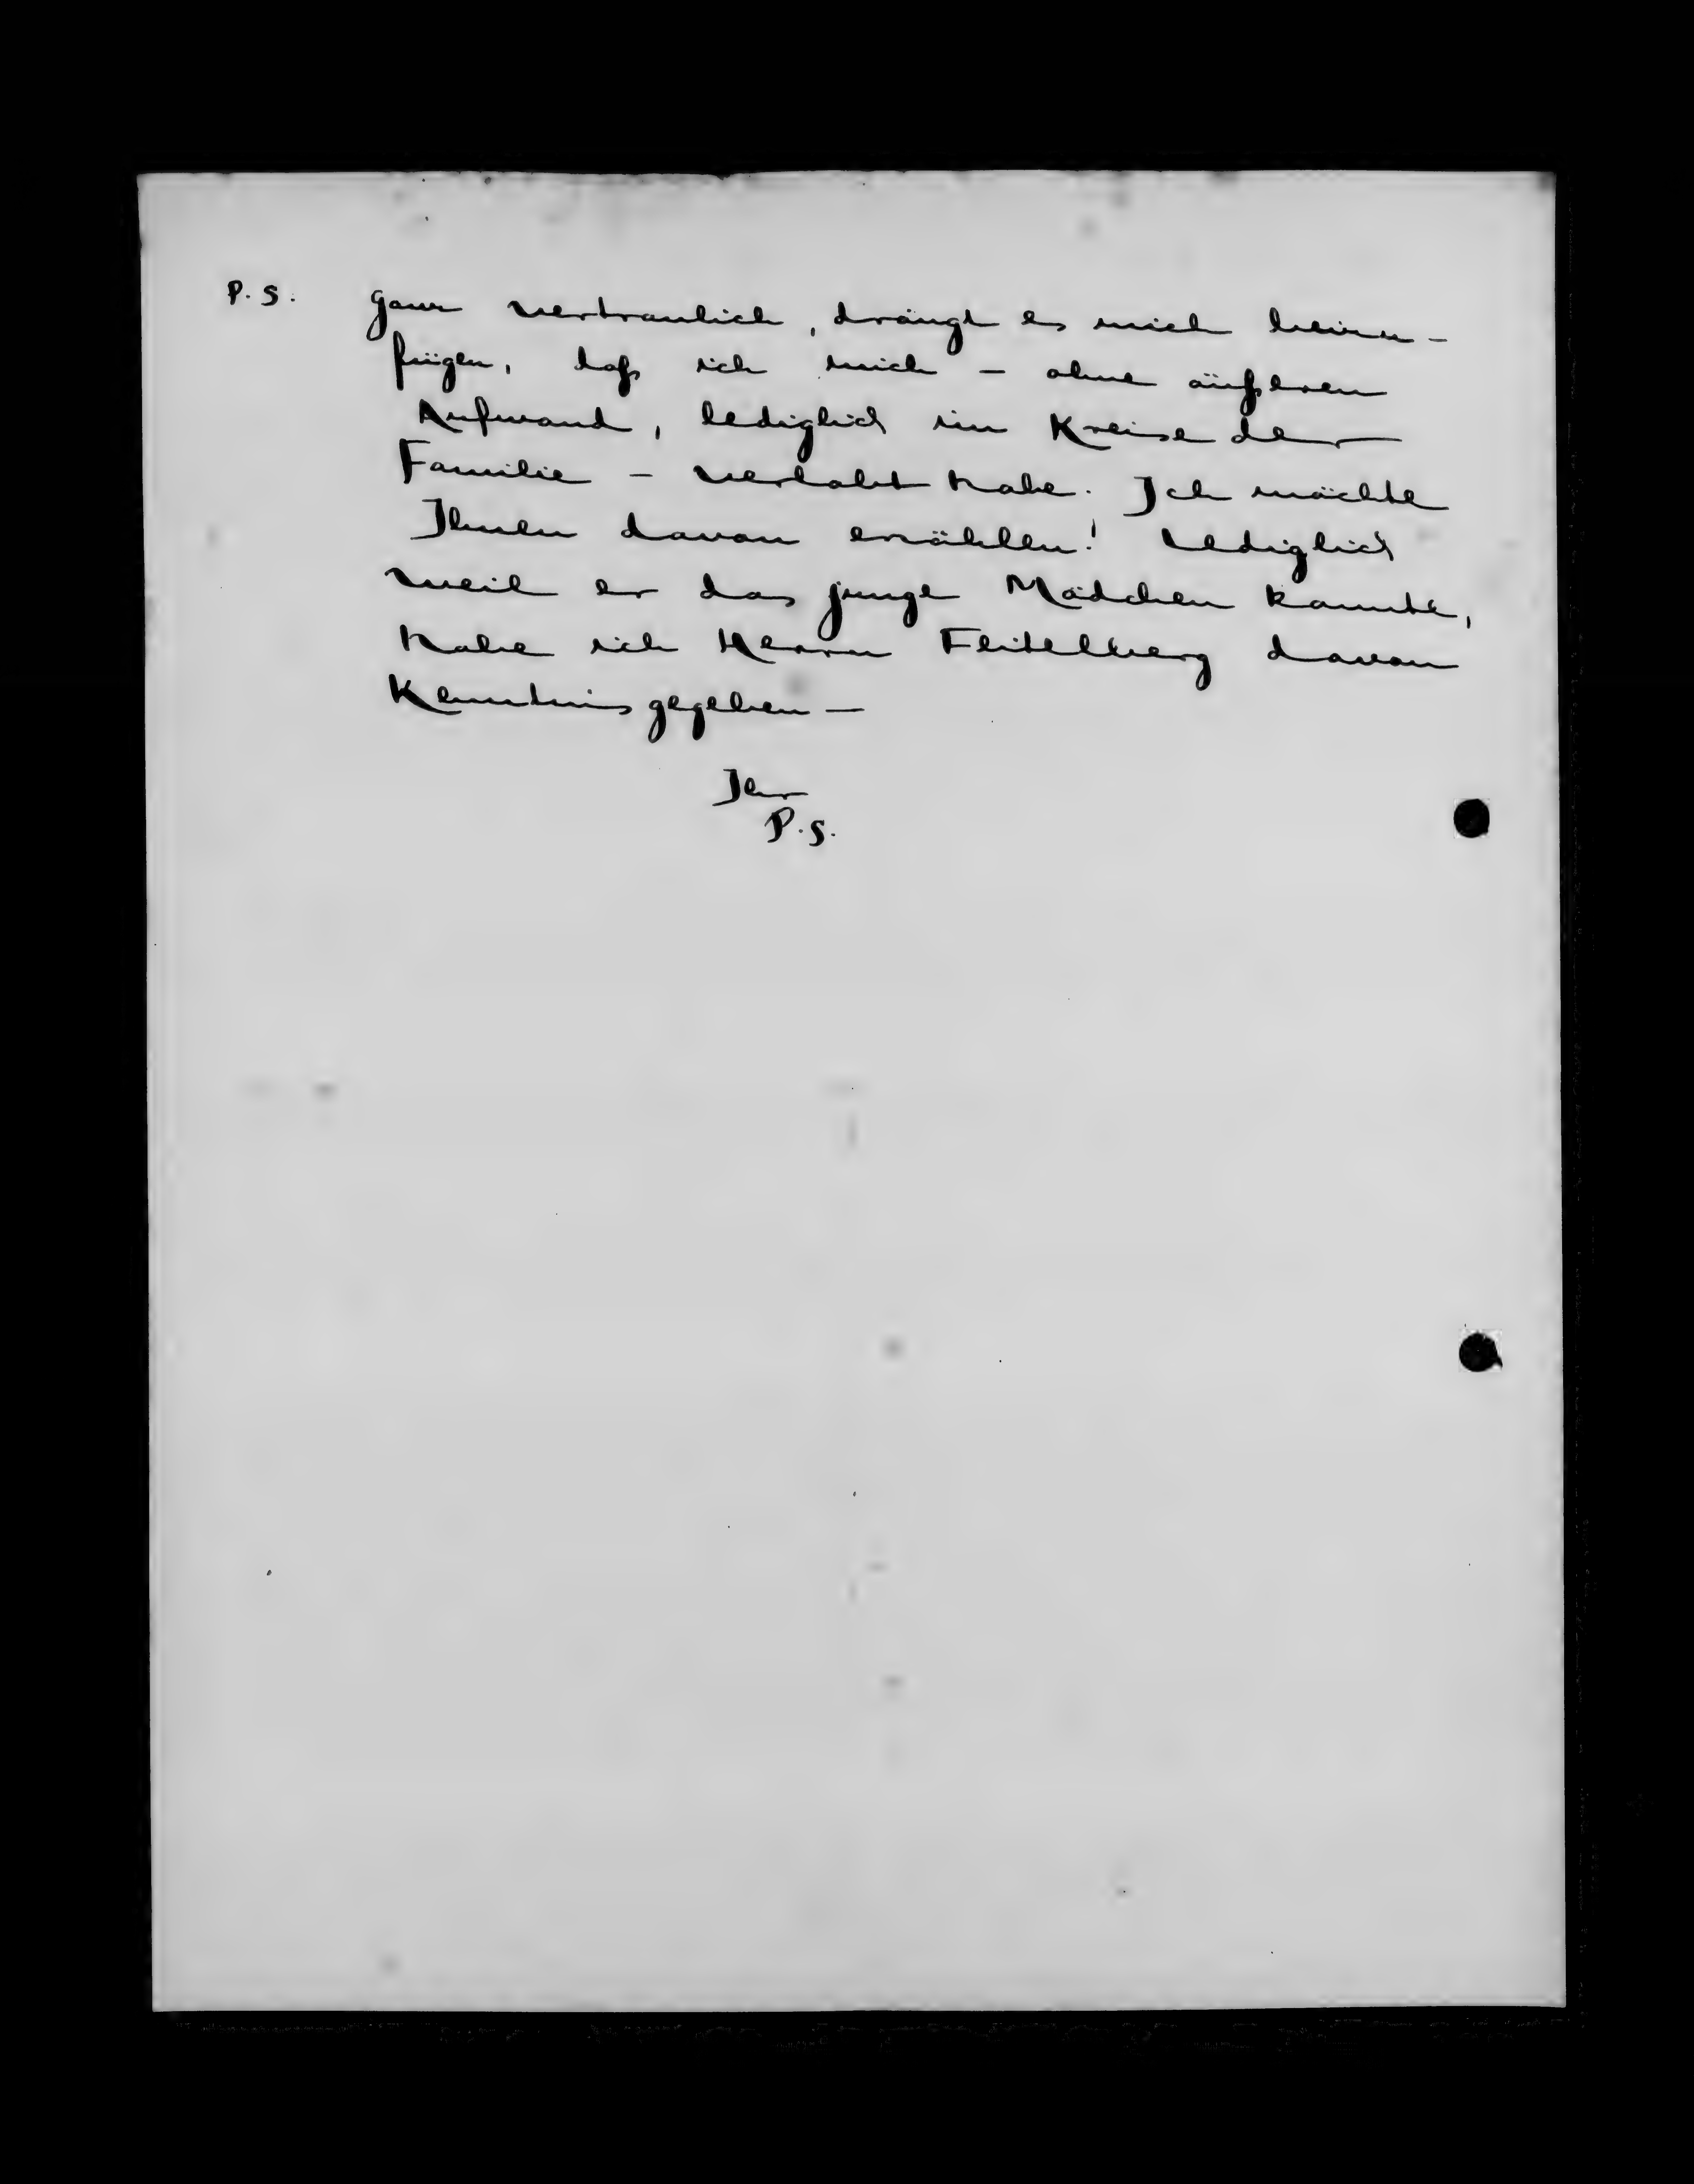 P.S. Ganz vertraulich, drängt es mich beizu-
fügen, daß ich mich – ohne äußeren
Aufwand, lediglich im Kreise der
Familie – verlobt habe. Ich möchte
Ihnen davon erzählen! Lediglich
weil er das junge Mädchen kannte,
habe ich Herrn Feitelberg davon
Kenntnis gegeben –
Ihr
P.S.